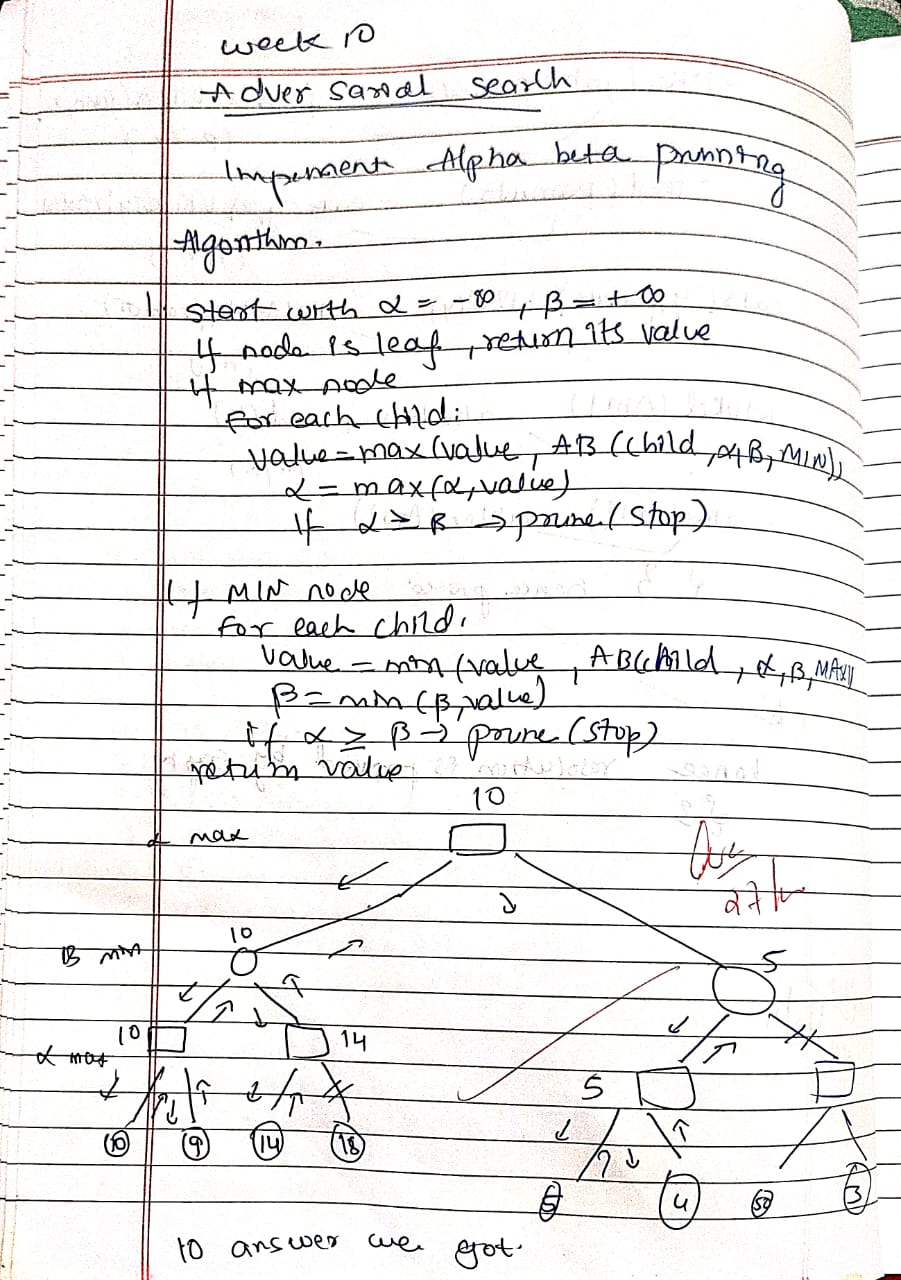 week 10
Adversarial search
Impement Alpha beta prunning
Algorithm.
1. start with α = -∞, β = +∞
If node is leaf, return its value
if max node
for each child:
value = max(value, AB(child, α, β, MIN))
α = max(α, value)
If α ≥ β → prune (stop)
If MIN node
for each child.
value = min(value, AB(child, α, β, MAX))
β = min(β, value)
if α ≥ β → prune (stop)
return value
10
α max
10
5
β min
10
14
α max
5
10 9 14 18
5 4 50 3
10 answer we got.